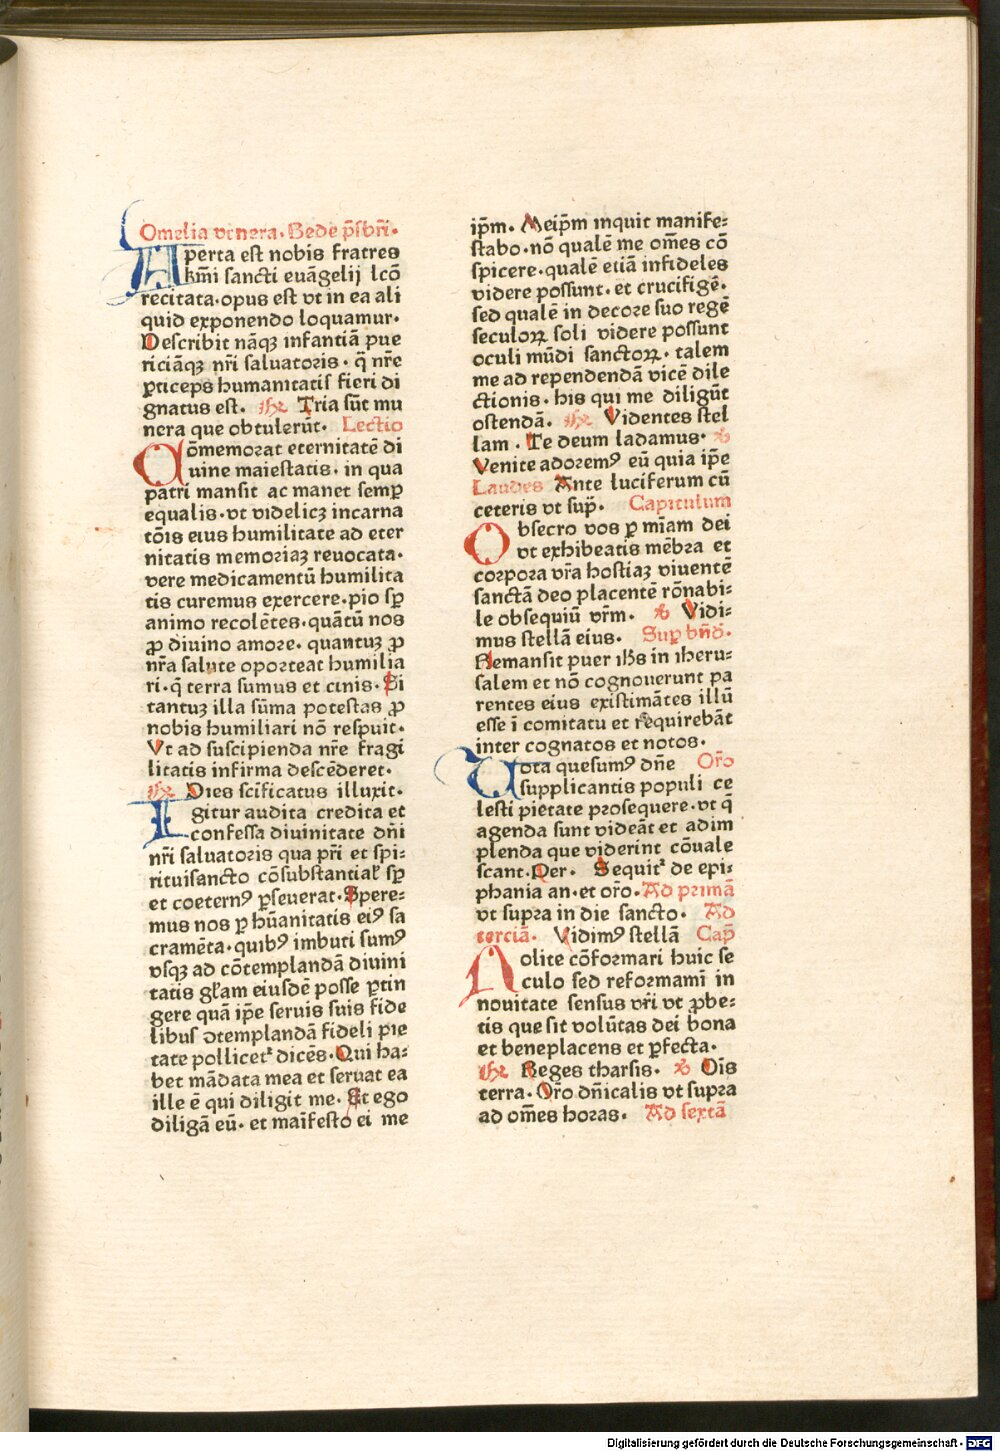 Omelia venera. Bede p̄sbr̄i.
Aperta est nobis fratres
km̄i sancti euāgelij lcō
recitata. opus est vt in ea ali
quid exponendo loquamur.
Describit nāqꝫ infantiā pue
riciāqꝫ nr̄i saluatoris. q̄ nr̄e
ꝑticeps humanitatis fieri di
gnatus est. Tria sūt mu
nera que obtulerūt. Lectio
Cōmemorat eternitatē di
uine maiestatis. in qua
patri mansit ac manet semꝑ
equalis. vt videlicꝫ incarna
tōis eius humilitate ad eter
nitatis memoriaꝫ reuocata.
vere medicamentū humilita
tis curemus exercere. pio sꝑ
animo recolētes. quātū nos
ꝓ diuino amore. quantuꝫ ꝓ
nr̄a salute oporteat humilia
ri. q̄ terra sumus et cinis. Si
tantuꝫ illa sūma potestas ꝓ
nobis humiliari nō respuit.
Vt ad suscipienda nr̄e fragi
litatis infirma descēderet.
Dies scīficatus illuxit.
Igitur audita credita et
confessa diuinitate dn̄i
nr̄i saluatoris qua pr̄i et spi:
rituisancto cōsubstantial̓ sꝑ
et coeternꝰ ꝑseuerat. Spere:
mus nos ꝑ hūanitatis eiꝰ sa
cramēta. quibꝰ imbuti sumꝰ
vsqꝫ ad cōtemplandā diuini
tatis gl̄am eiusdē posse ꝑtin
gere quā ip̄e seruis suis fide
libus ↄtemplandā fideli pie
tate pollicetᷣ dicēs. Qui ha:
bet mādata mea et seruat ea
ille ē qui diligit me. Et ego
diligā eū. et maīfesto ei me
ip̄m. Meip̄m inquit manife:
stabo. nō qualē me om̄es cō
spicere. qualē etiā infideles
videre possunt. et crucifigē.
sed qualē in decore suo regē
seculoꝝ soli videre possunt
oculi mūdi sanctoꝝ. talem
me ad rependendā vicē dile
ctionis. his qui me diligūt
ostendā. Videntes stel
lam. Te deum ladamus.
Venite adoremꝰ eū quia ip̄e
Laudes Ante luciferum cū
ceteris vt sup̄. Capitulum
Obsecro vos ꝑ mīam dei
vt exhibeatis mēbra et
corpora vr̄a hostiaꝫ viuentē
sanctā deo placentē rōnabi:
le obsequiū vr̄m. Vidi:
mus stellā eius. Suꝑ bn̄d.
Remansit puer ih̄s in iheru:
salem et nō cognouerunt pa
rentes eius existimātes illū
esse ī comitatu et requirebāt
inter cognatos et notos.
Vota quesumꝰ dn̄e Or̄o
supplicantis populi ce
lesti pietate prosequere. vt q̄
agenda sunt videāt et adim
plenda que viderint cōuale
scant. Per. Sequitᷣ de epi:
phania an. et or̄o. Ad primā
vt supra in die sancto. Ad
terciā. Vidimꝰ stellā Cap̄
Nolite cōformari huic se
culo sed reformamī in
nouitate sensus vr̄i vt ꝓbe:
tis que sit volūtas dei bona
et beneplacens et ꝑfecta.
Reges tharsis. Oīs
terra. Or̄o dn̄icalis vt supra
ad om̄es horas. Ad sextā
Digitalisierung gefördert durch die Deutsche Forschungsgemeinschaft - DFG